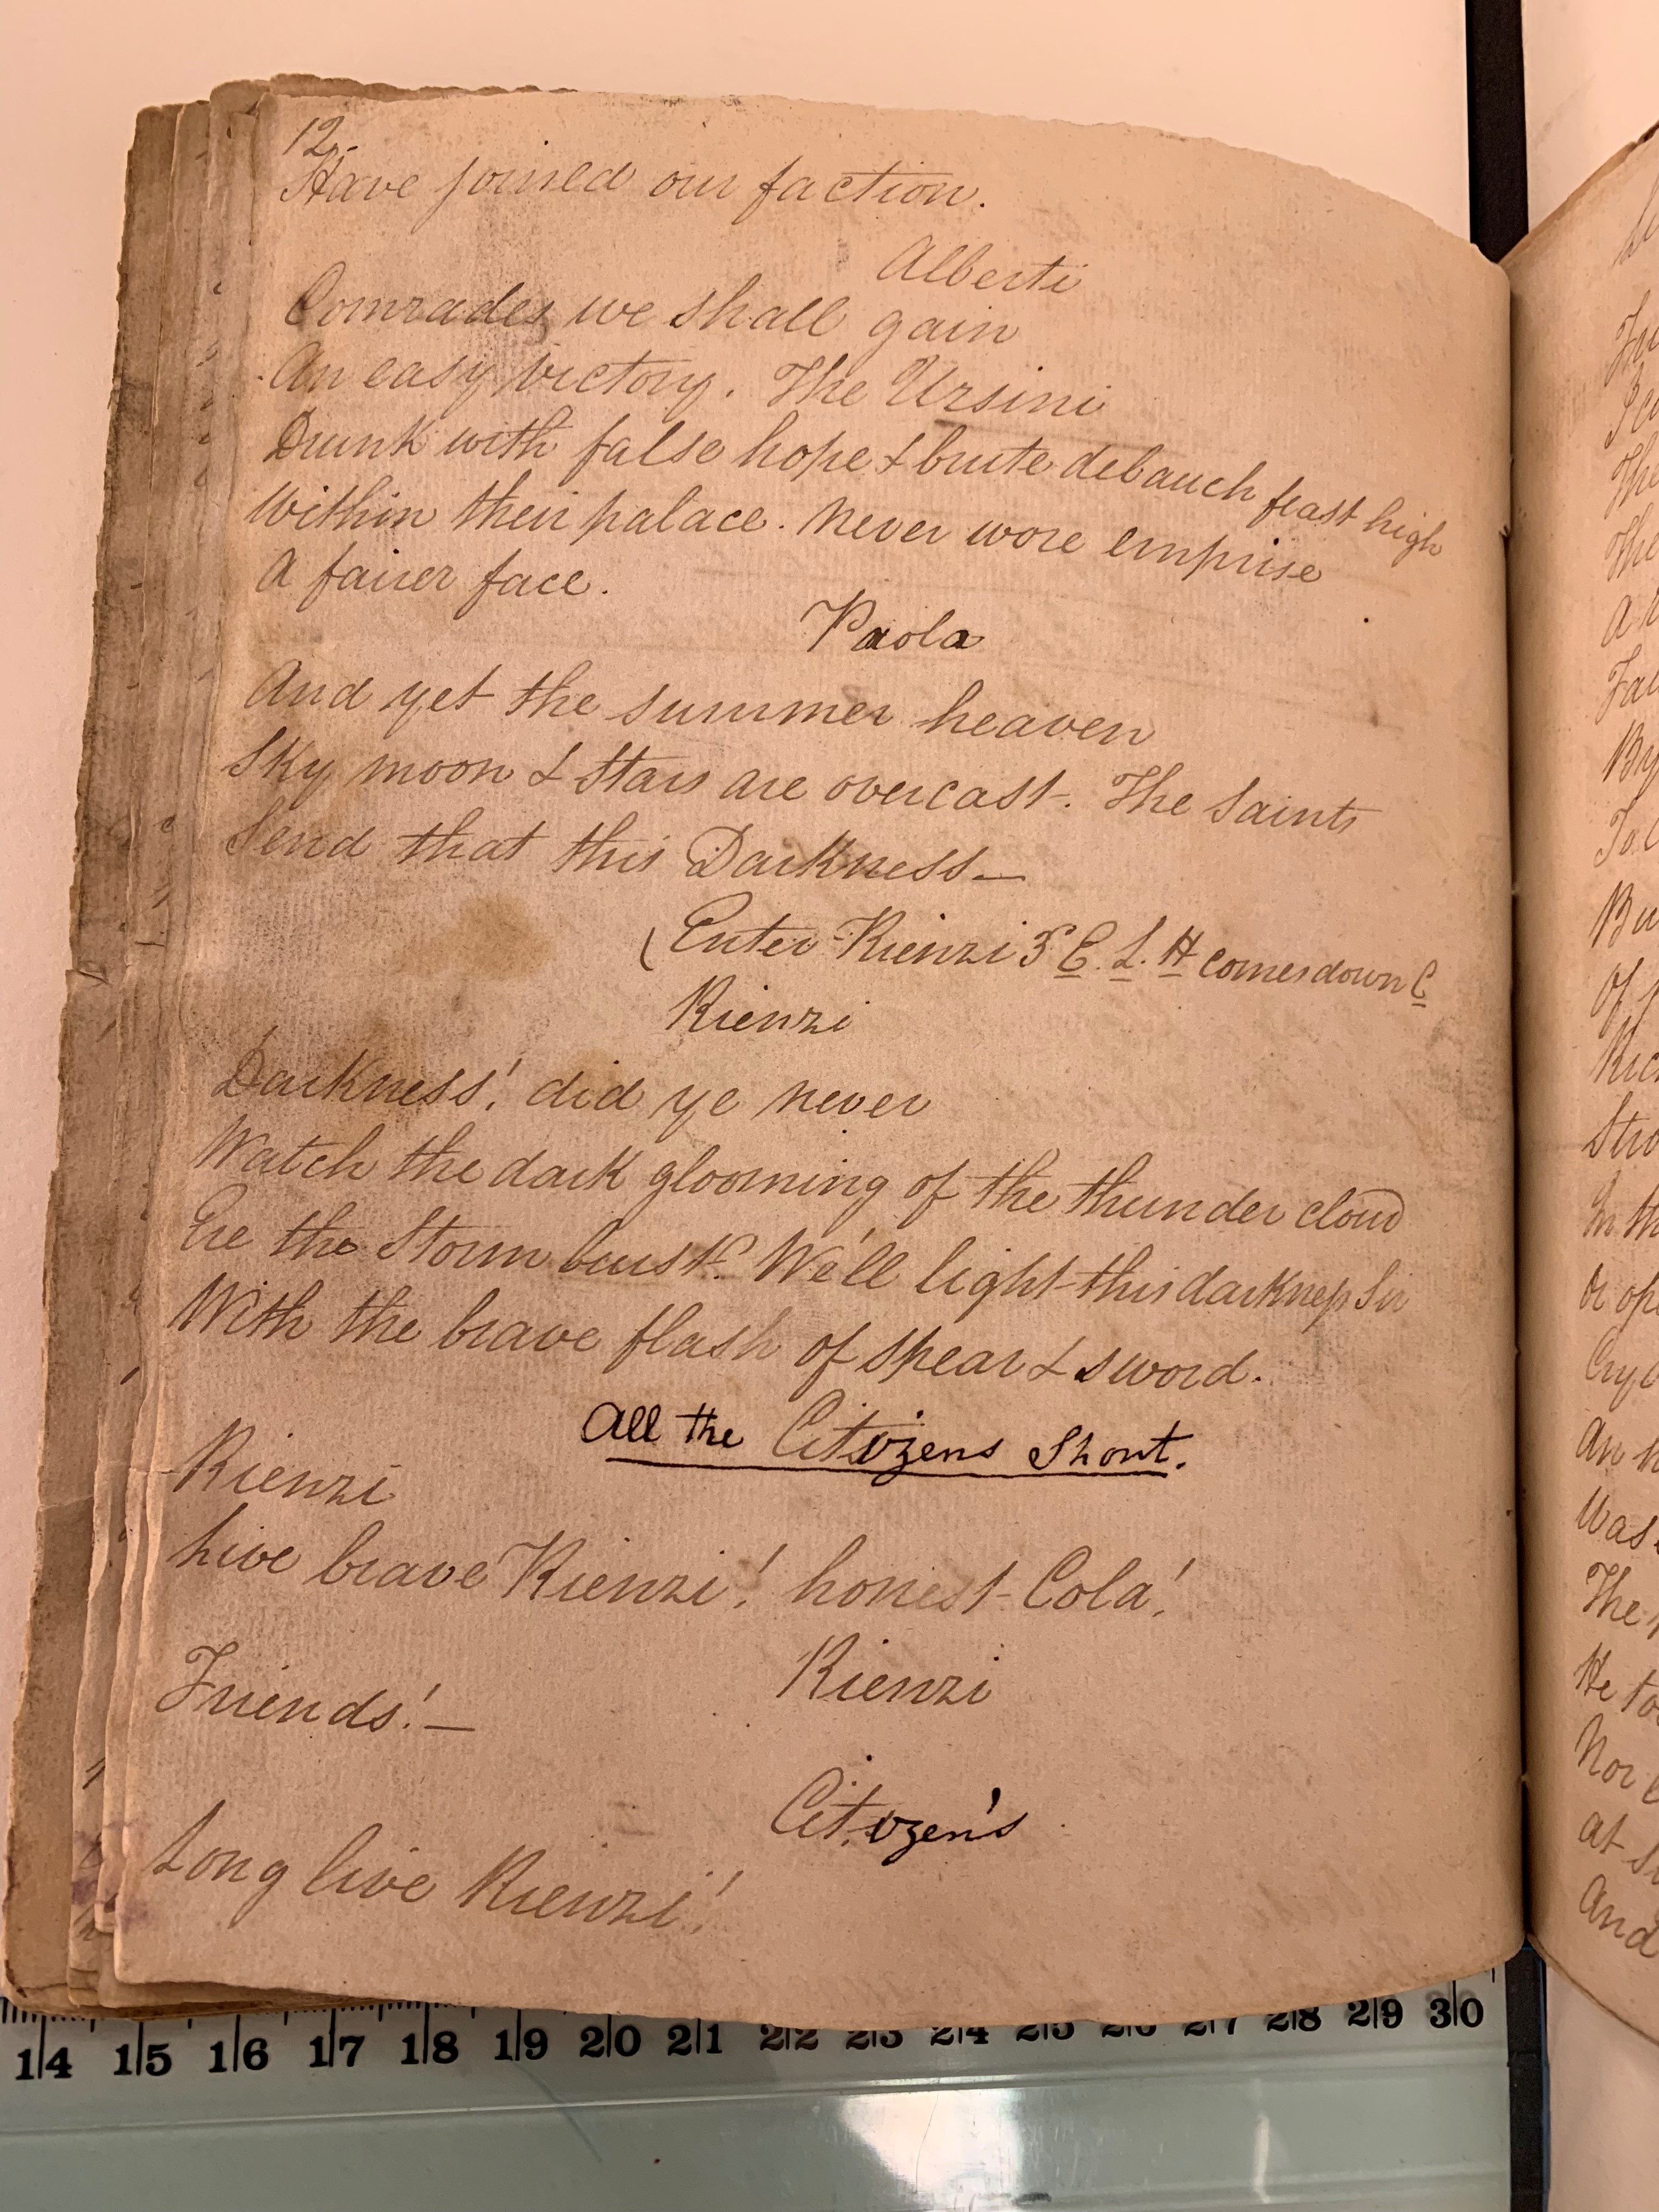 12.
Have joined our faction.
Alberti
Comrades we shall gain
An easy victory. The Ursini
Drunk with false hope & brute debauch feast high
Within their palace. Never wore emprise
A fairer face.
Paola
And yet the summer heaven
Sky moon & Stars are overcast. The Saints
Send that this Darkness—
(Enter Rienzi 3 E. L. H comes down C
Rienzi
Darkness! did ye never
Watch the dark glooming of the thunder cloud
Ere the Storm burst? We'll light this darkness Sir
With the brave flash of spear & sword.
All the Citizens Shout.
Rienzi
Live brave Rienzi! honest Cola!
Rienzi
Friends!—
Citizen's
Long live Rienzi!
14 15 16 17 18 19 20 21 22 23 24 25 26 27 28 29 30